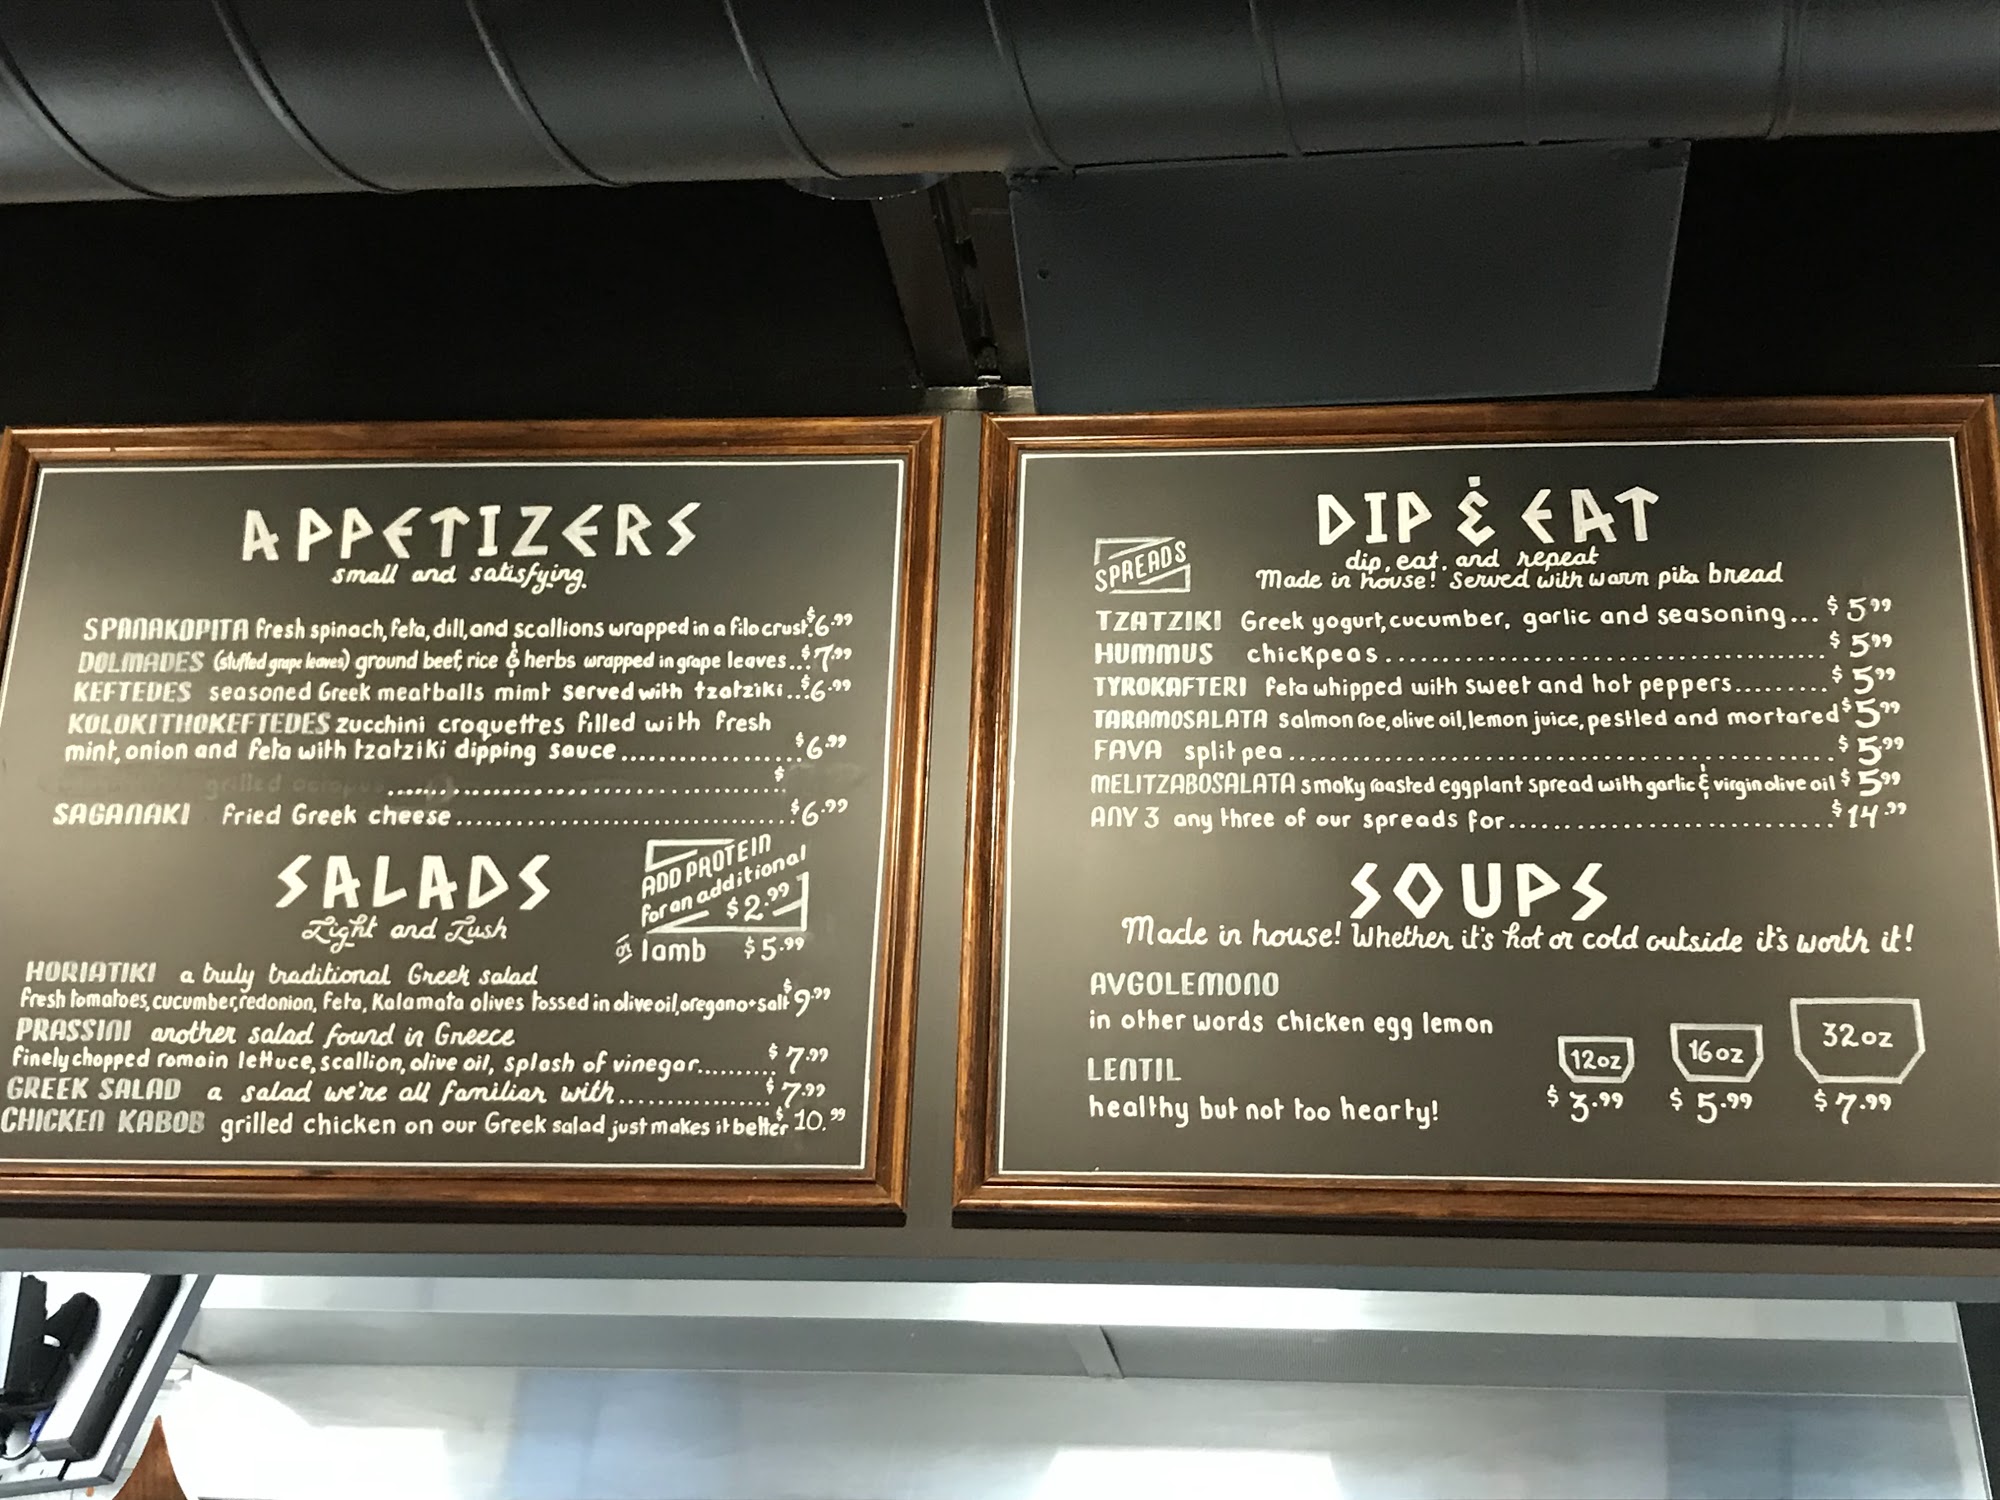 APPETIZERS
small and satisfying.
SPANAKOPITA fresh spinach, feta, dill, and scallions wrapped in a filo crust. $6.99
DOLMADES (stuffed grape leaves) ground beef, rice & herbs wrapped in grape leaves...$7.99
KEFTEDES seasoned Greek meatballs mimt served with tzatziki...$6.99
KOLOKITHOKEFTEDES zucchini croquettes filled with fresh
mint, onion and feta with tzatziki dipping sauce.................... $6.99
grilled .......................................... $
SAGANAKI Fried Greek cheese....................................$6.99
SALADS
Light and Lush
ADD PROTEIN
for an additional
$2.99
or lamb $5.99
HORIATIKI a truly traditional Greek salad
Fresh tomatoes, cucumber, red onion, feta, Kalamata olives tossed in olive oil, oregano + salt $9.99
PRASSINI another salad found in Greece
Finely chopped romain lettuce, scallion, olive oil, splash of vinegar.......... $7.99
GREEK SALAD a salad we're all familiar with.................. $7.99
CHICKEN KABOB grilled chicken on our Greek salad just makes it better $10.99
DIP & EAT
dip, eat, and repeat
SPREADS
Made in house! Served with warm pita bread
TZATZIKI Greek yogurt, cucumber, garlic and seasoning... $5.99
HUMMUS chickpeas............................................ $5.99
TYROKAFTERI feta whipped with sweet and hot peppers......... $5.99
TARAMOSALATA salmon roe, olive oil, lemon juice, pestled and mortared $5.99
FAVA split pea....................................................... $5.99
MELITZABOSALATA smoky roasted eggplant spread with garlic & virgin olive oil $5.99
ANY 3 any three of our spreads for.................................$14.99
SOUPS
Made in house! Whether it's hot or cold outside it's worth it!
AVGOLEMONO
in other words chicken egg lemon
LENTIL
healthy but not too hearty!
12oz 16oz 32oz
$3.99 $5.99 $7.99